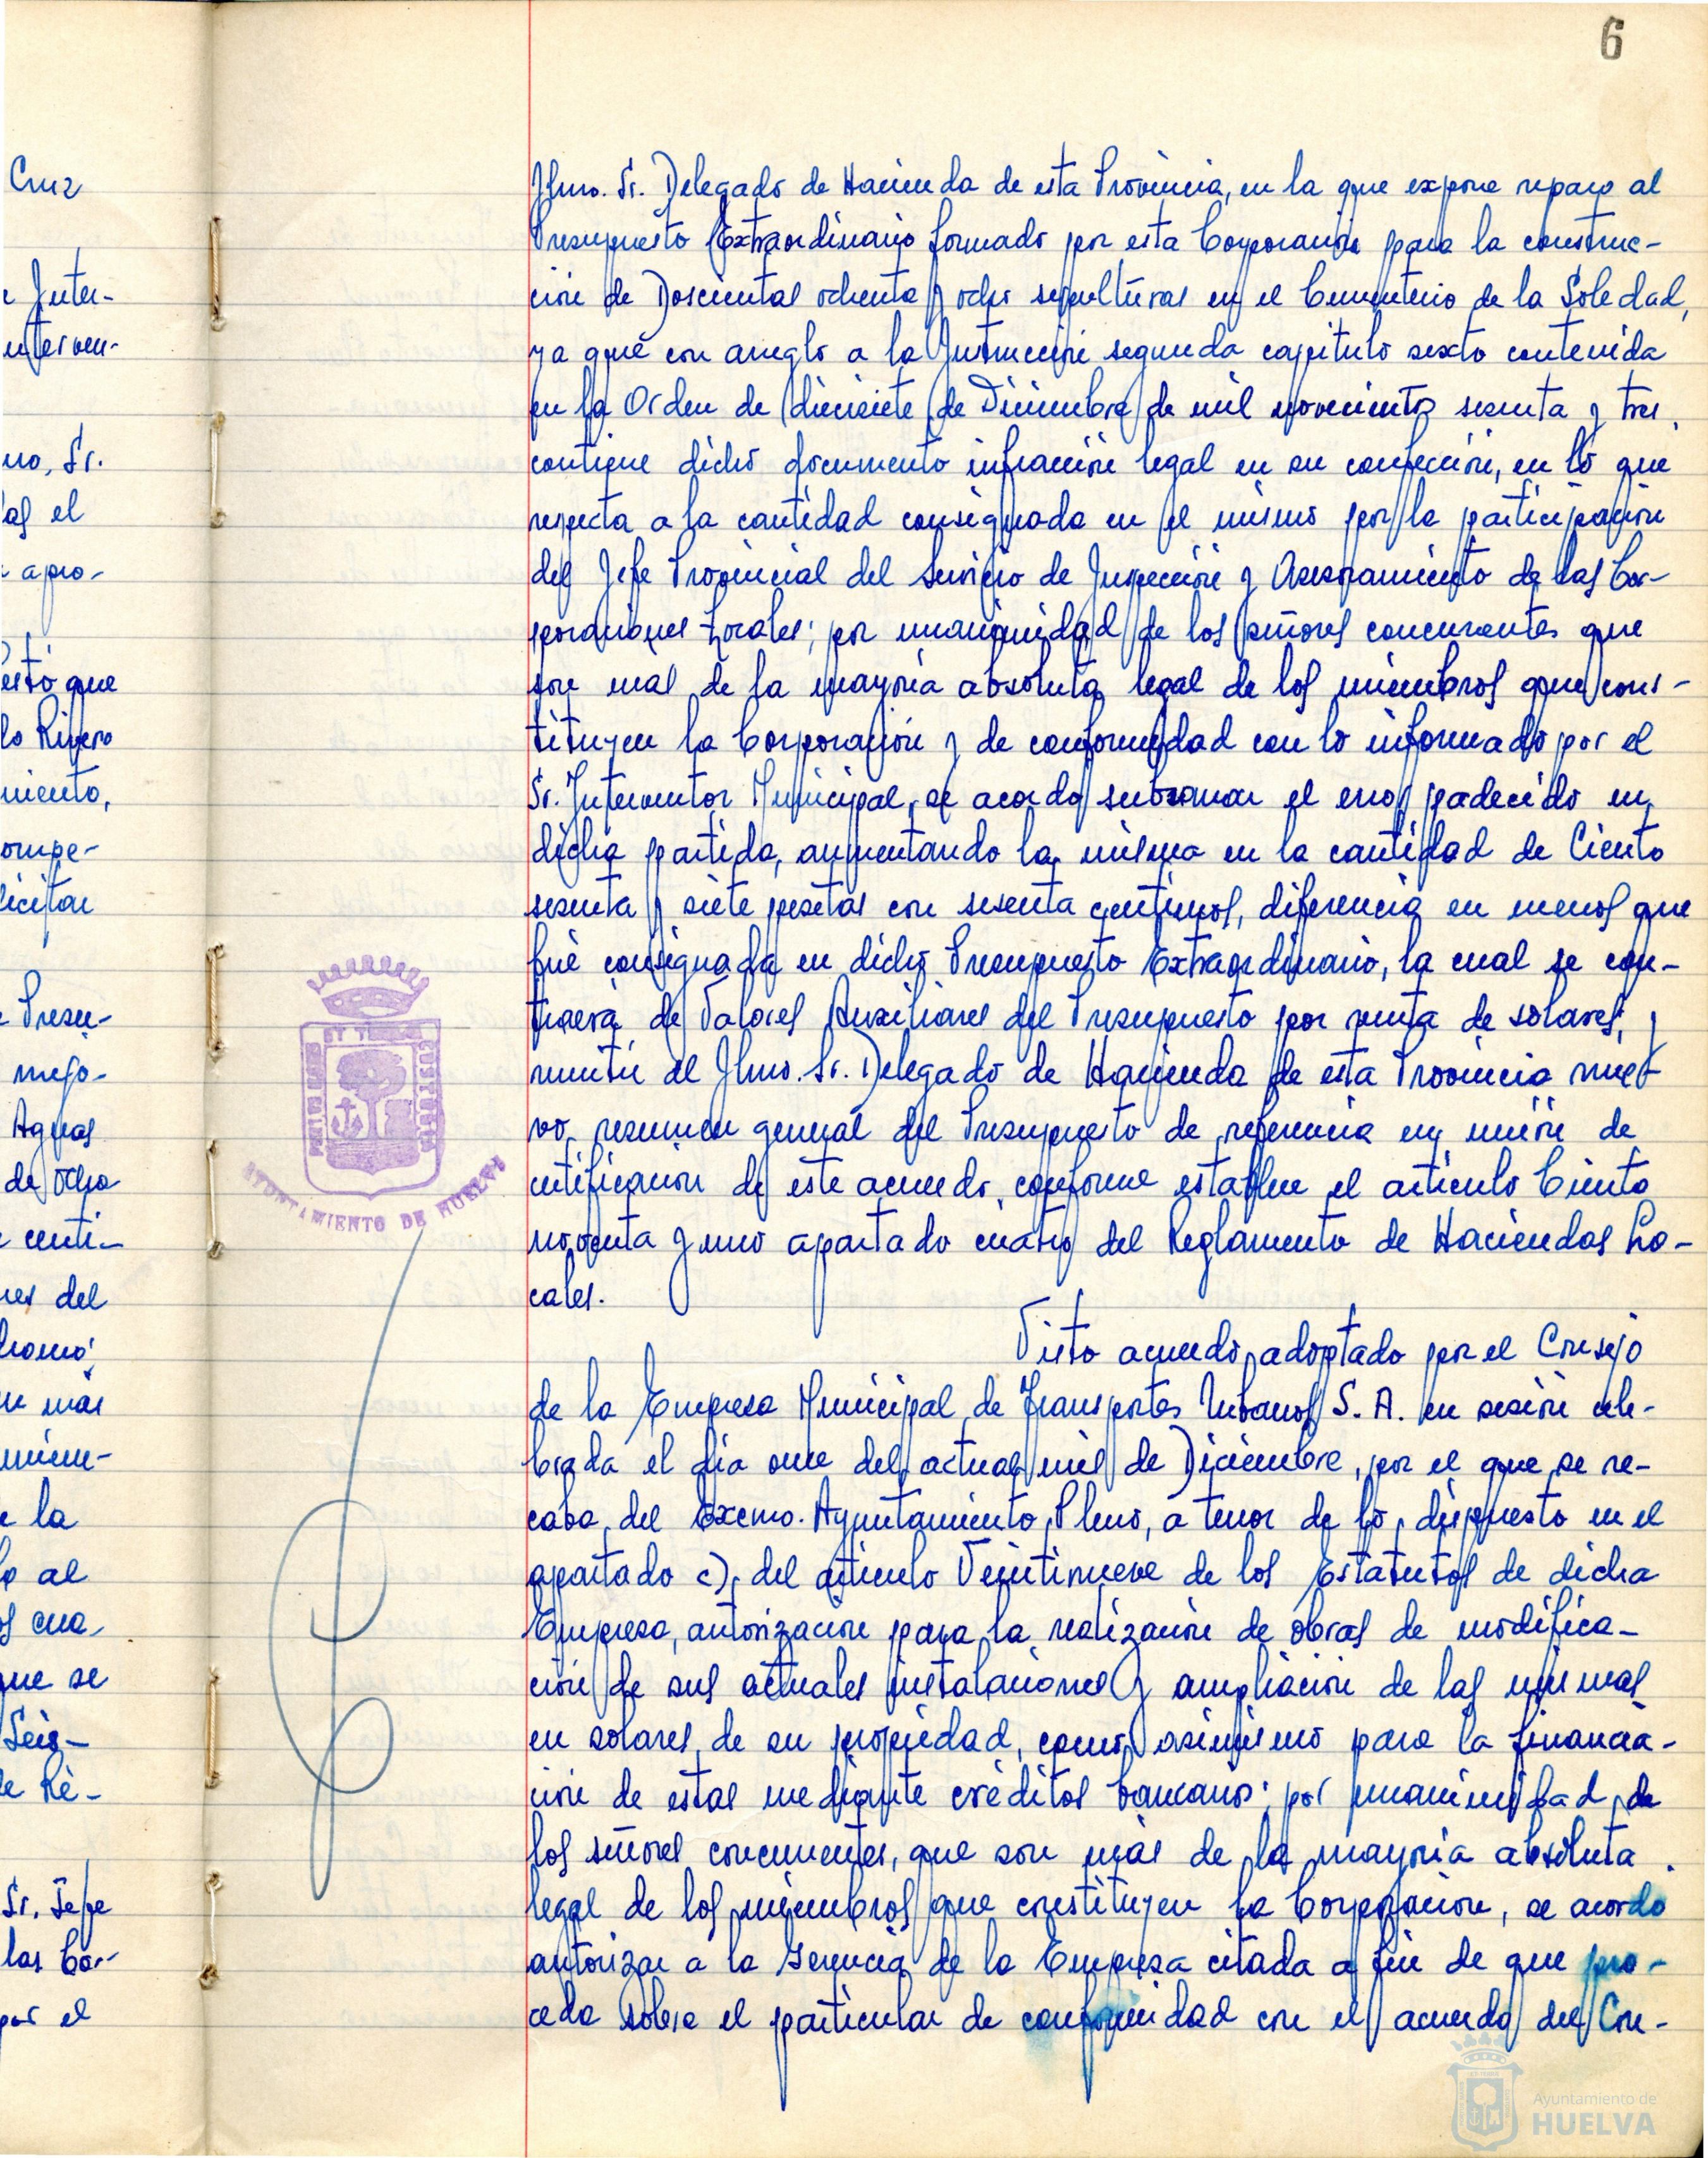 6
Cruz
e Inter-
nterven-
no, Sr.
as el
a apro-
esto que
lo Rivero
miento,
ompe-
licitar
e Presu-
mejo-
Aguas
de ocho
e centi-
res del
n más
miem-
e la
lo al
os cua-
que se
Seis-
de Re-
Sr. Jefe
las Cor-
por el
Ilmo. Sr. Delegado de Hacienda de esta Provincia, en la que expone reparo al
Presupuesto Extraordinario formado por esta Corporación para la construc-
ción de Doscientas ochenta y ocho sepulturas en el Cementerio de la Soledad,
ya que con arreglo a la Instrucción segunda capitulo sexto contenida
en la Orden de diecisiete de Diciembre de mil novecientos sesenta y tres,
contiene dicho documento infracción legal en su confección, en lo que
respecta a la cantidad consignada en el mismo por la participación
del Jefe Provincial del Servicio de Inspección y Asesoramiento de las Cor-
poraciones Locales; por unanimidad de los señores concurrentes que
son mas de la mayoria absoluta legal de los miembros que cons-
tituyen la Corporación y de conformidad con lo informado por el
Sr. Interventor Municipal, se acordo subsanar el error padecido en
dicha partida, aumentando la misma en la cantidad de Ciento
sesenta y siete pesetas con sesenta centimos, diferencia en menos que
fué consignada en dicho Presupuesto Extraordinario, la cual se con-
traera de Valores Auxiliares del Presupuesto por venta de solares; y
remitir al Ilmo. Sr. Delegado de Hacienda de esta Provincia nue-
vo resumen general del Presupuesto de referencia en unión de
certificación de este acuerdo, conforme establece el articulo Ciento
noventa y uno apartado cuatro del Reglamento de Haciendas Lo-
cales.
Visto acuerdo adoptado por el Consejo
de la Empresa Municipal de Transportes Urbanos S. A. en sesión cele-
brada el dia once del actual mes de Diciembre, por el que se re-
caba del Excmo. Ayuntamiento Pleno, a tenor de lo dispuesto en el
apartado c), del articulo Veintinueve de los Estatutos de dicha
Empresa, autorización para la realización de obras de modifica-
ción de sus actuales instalaciones y ampliación de las mismas
en solares de su propiedad, como asimismo para la financia-
ción de estas mediante créditos bancarios; por unanimidad de
los señores concurrentes, que son más de la mayoria absoluta
legal de los miembros que constituyen la Corporación, se acordo
autorizar a la Gerencia de la Empresa citada a fin de que pro-
ceda sobre el particular de conformidad con el acuerdo del Con-
PORTUS MARIS ET TERRAE CUSTODIA
AYUNTAMIENTO DE HUELVA
Ayuntamiento de
HUELVA